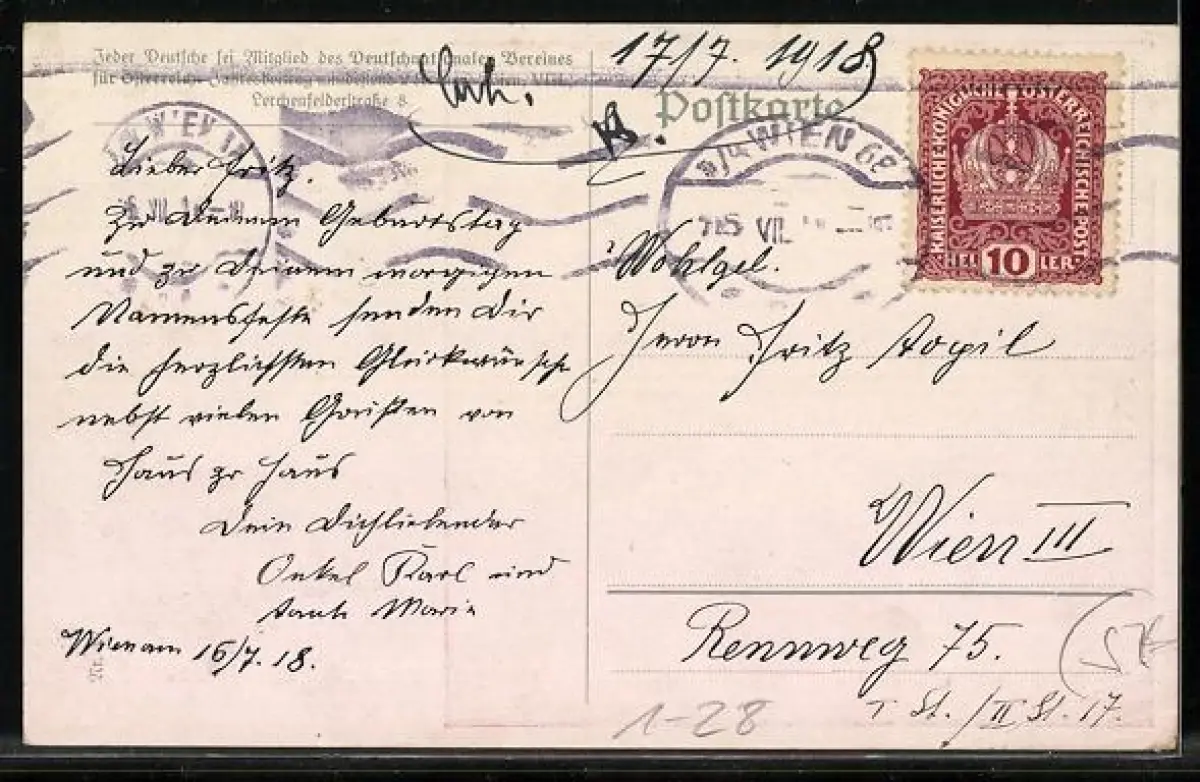 Jeder Deutsche sei Mitglied des Deutschnationalen Vereines
für Österreich. Wien, VIII.
Lerchenfelderstraße 8
17/7. 1918
Postkarte
WIEN
WIEN
VII
KAISERLICHE KÖNIGLICHE ÖSTERREICHISCHE POST
HELLER
10
Lieber Fritz.
Zu Deinem Geburtstag
und zu Deinem morgigen
Namensfeste senden Dir
die herzlichsten Glückwünsche
nebst vielen Grüßen von
Haus zu Haus
Dein Dichliebender
Onkel Karl und
Tante Marie
Wien am 16/7. 18.
Wohlgeb.
Herrn Fritz
Wien III
Rennweg 75.
St./II St. 17.
1-28